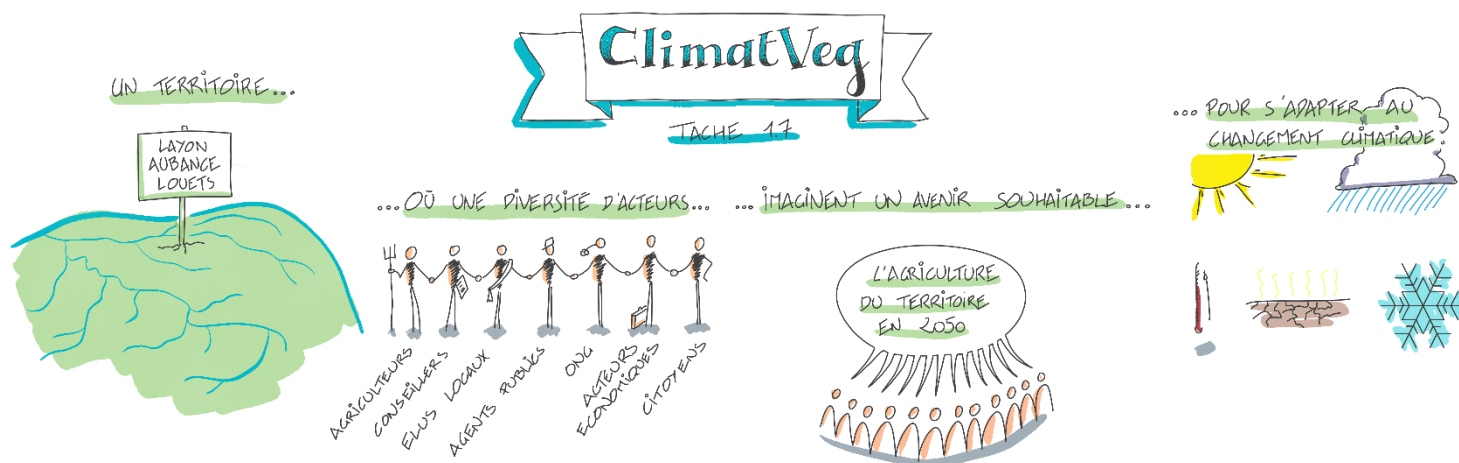 ClimatVeg
TACHE 1.7
UN TERRITOIRE...
LAYON
AUBANCE
LOUETS
...OÙ UNE DIVERSITE D'ACTEURS...
AGRICULTEURS
CONSEILLERS
ELUS LOCAUX
AGENTS PUBLICS
ONG
ACTEURS
ECONOMIQUES
CITOYENS
...IMAGINENT UN AVENIR SOUHAITABLE...
L'AGRICULTURE
DU TERRITOIRE
EN 2050
...POUR S'ADAPTER AU
CHANGEMENT CLIMATIQUE